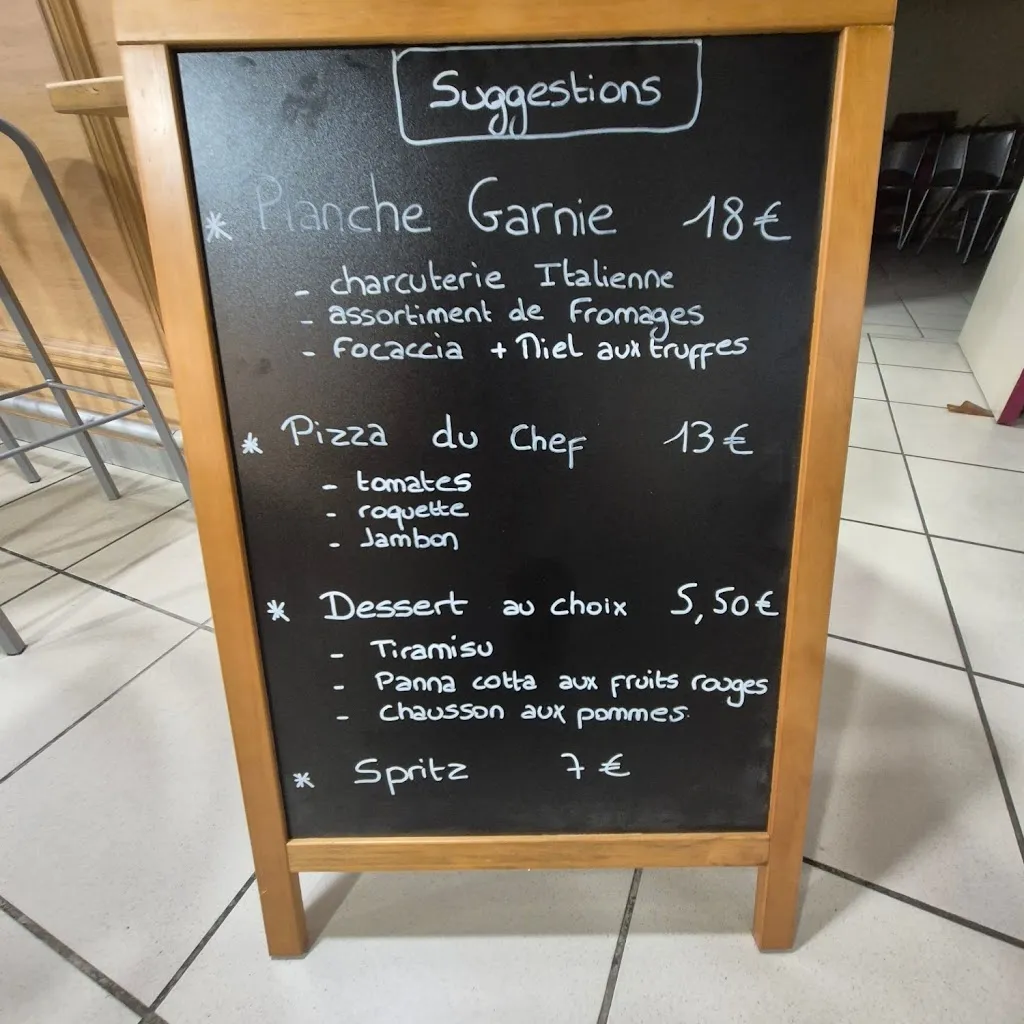 Suggestions
* Planche Garnie 18€
- charcuterie Italienne
- assortiment de Fromages
- Focaccia + Miel aux truffes
* Pizza du Chef 13€
- tomates
- roquette
- Jambon
* Dessert au choix 5,50€
- Tiramisu
- Panna cotta aux fruits rouges
- Chausson aux pommes
* Spritz 7 €